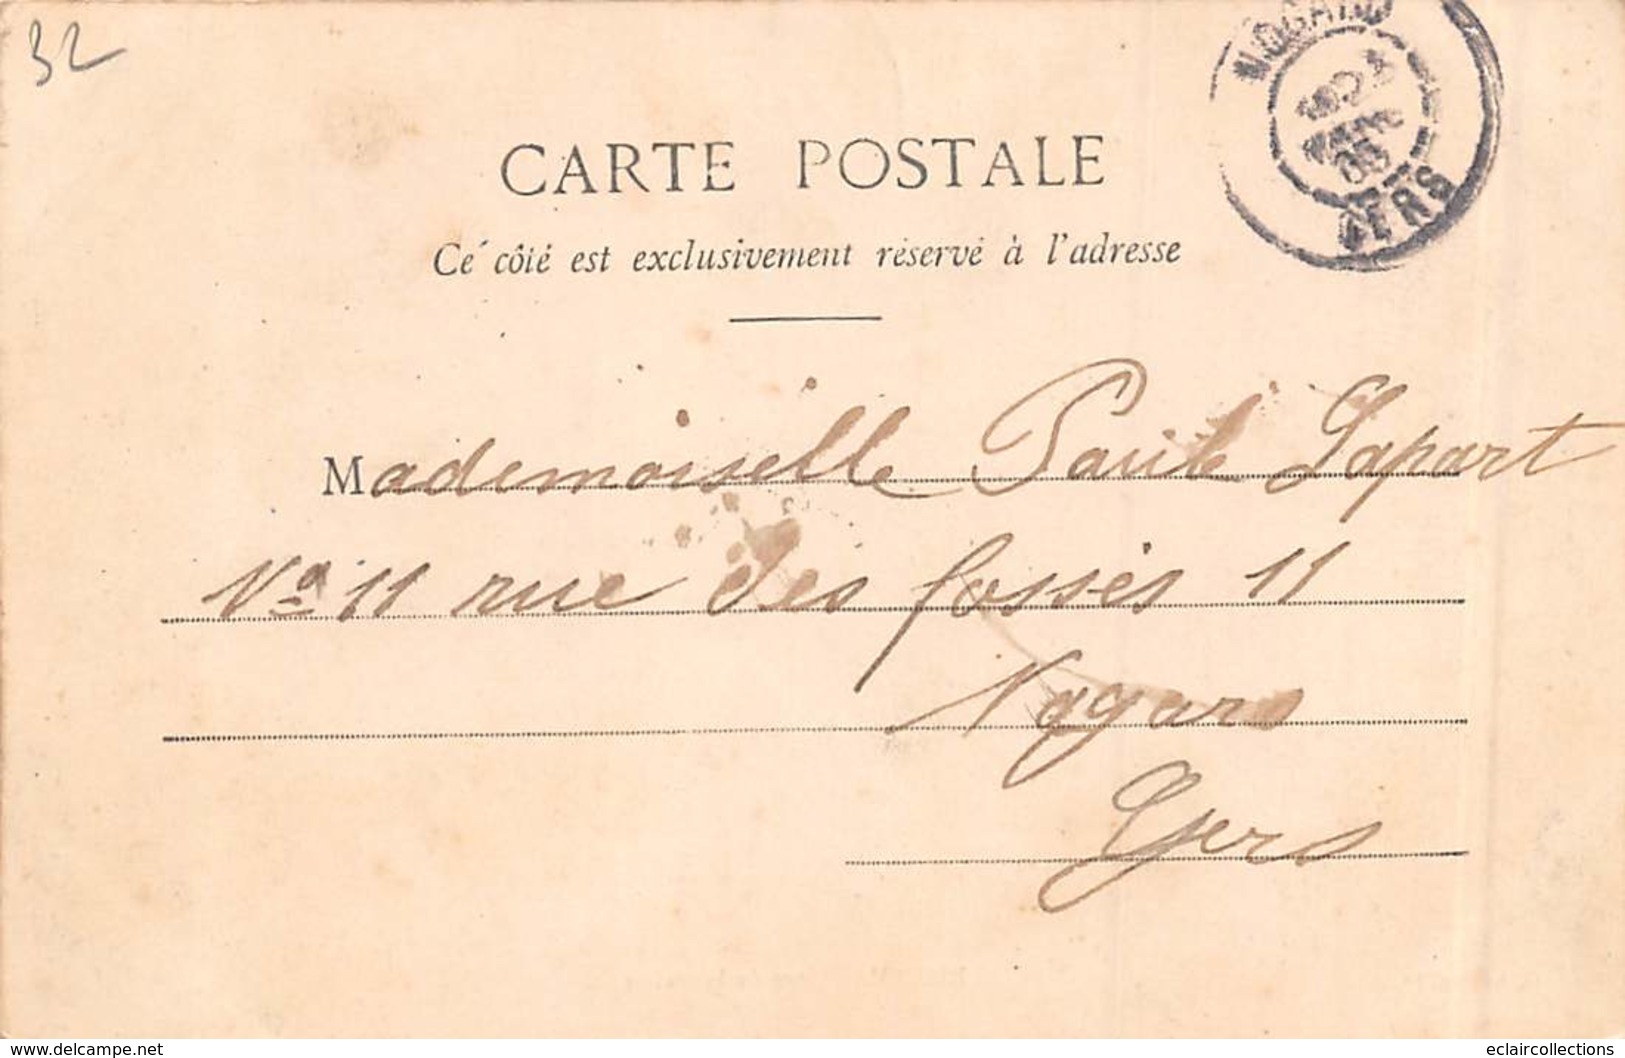 32
NOGARO
GERS
CARTE POSTALE
Ce côté est exclusivement réservé à l'adresse
Mademoiselle Paule Lapart
No 11 rue des fossés 11
Nogaro
Gers
www.delcampe.net
eclaircollections